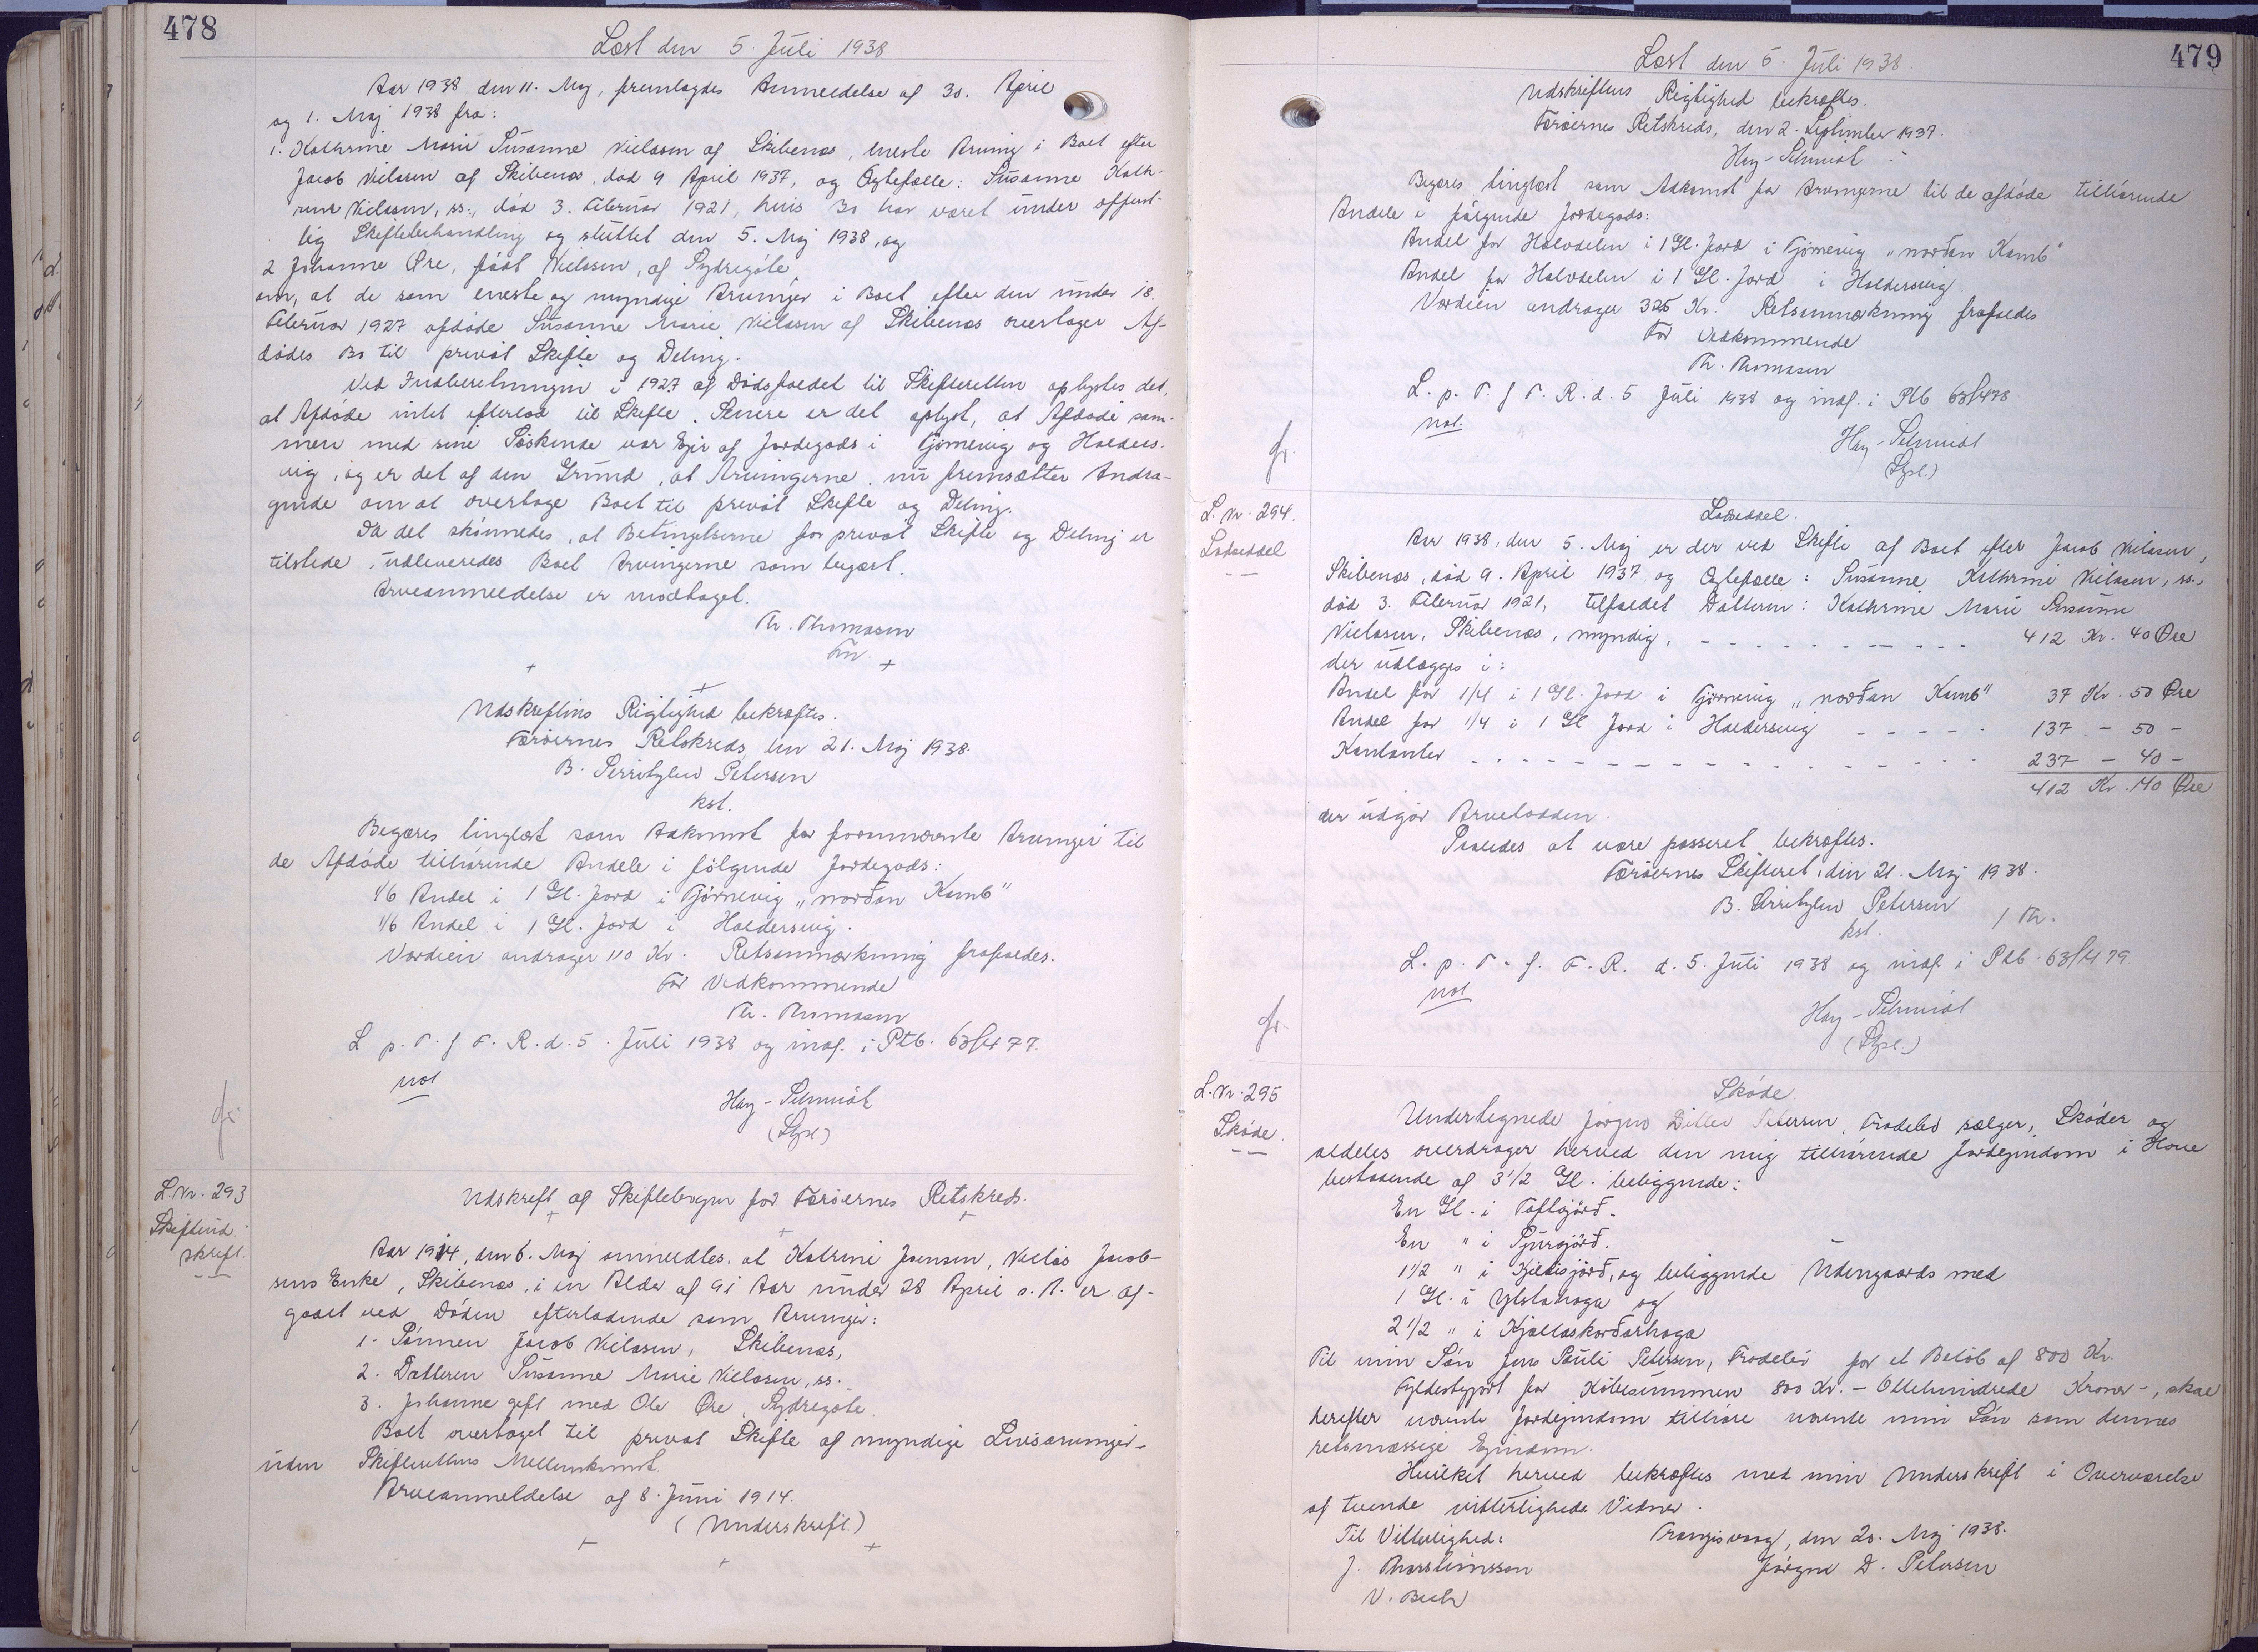 478
Læst den 5. Juli 1938
Aar 1938 den 11. Maj, fremlagdes Anmeldelse af 30. April
og 1. Maj 1938 fra:
1. Kathrine Marie Susanne Nielsen af Skibenæs, eneste Arving i Boet efter
Jacob Nielsen af Skibenæs, død 9 April 1937, og Ægtefælle: Susanne Kath-
rine Nielsen, ss., død 3. Februar 1921, hvis Bo har været under offent-
lig Skiftebehandling og sluttet den 5. Maj 1938, og
2 Johanne Øre, født Nielsen, af Sydregøte,
om, at de som eneste og myndige Arvinger i Boet efter den under 18.
Februar 1927 afdøde Susanne Marie Nielsen af Skibenæs overtager Af-
dødes Bo til privat Skifte og Deling.
Ved Indberetningen i 1927 af Dødsfaldet til Skifteretten oplystes det,
at Afdøde intet efterlod til Skifte. Senere er det oplyst, at Afdøde sam-
men med sine Søskende var Ejer af Jordegods i Tjørnevig og Halders-
vig, og er det af den Grund, at Arvingerne nu fremsætter Andra-
gende om at overtage Boet til privat Skifte og Deling.
Da det skønnedes, at Betingelserne for privat Skifte og Deling er
tilstede, udleveredes Boet Arvingerne som begært.
Arveanmeldelse er modtaget.
Th. Thomasen
Fm.
Udskriftens Rigtighed bekræftes.
Færøernes Retskreds, den 21. Maj 1938.
B. Petersen
kst.
Begæres tinglæst som Adkomst for forannævnte Arvinger til
de Afdøde tilhørende Andele i følgende Jordegods:
1/6 Andel i 1 Gl. Jord i Tjørnevig "norðan Kamb"
1/6 Andel i 1 Gl. Jord i Haldersvig.
Værdien andrager 110 Kr. Retsanmærkning frafaldes.
For Vedkommende
Th. Thomasen
L. p. T. f F. R. d. 5. Juli 1938 og indf. i Ptb. 63/477.
not
Hay-Schmidt
(Lysl.)
gr.
L. Nr. 293
Skifteud-
skrift.
Udskrift af Skiftebogen for Færøernes Retskreds.
Aar 1914, den 6. Maj anmeldtes, at Katrine Joensen, Niclas Jacob-
sens Enke, Skibenæs, i en Alder af 91 Aar under 28 April s. A. er af-
gaaet ved Døden efterladende som Arvinger:
1. Sønnen Jacob Nielsen, Skibenæs,
2. Datteren Susanne Marie Nielsen, ss.
3. Johanne gift med Ole Øre, Sydregøte.
Boet overtaget til privat Skifte af myndige Livsarvinger
uden Skifterettens Mellemkomst.
Arveanmeldelse af 8. Juni 1914.
(Underskrift)
479
Læst den 5. Juli 1938.
Udskriftens Rigtighed bekræftes.
Færøernes Retskreds, den 2. September 1937.
Hay-Schmidt
Begæres tinglæst som Adkomst for Arvingerne til de afdøde tilhørende
Andele i følgende Jordegods:
Andel for Halvdelen i 1 Gl. Jord i Tjørnevig "norðan Kamb"
Andel for Halvdelen i 1 Gl. Jord i Haldersvig.
Værdien andrager 325 Kr. Retsanmærkning frafaldes
For Vedkommende
Th. Thomasen
L. p. T. f F. R. d. 5 Juli 1938 og indf. i Ptb 63/478
not.
Hay-Schmidt
(Lysl.)
gr.
L. Nr. 294.
Lodseddel
Lodseddel.
Aar 1938, den 5. Maj er der ved Skifte af Boet efter Jacob Nielsen,
Skibenæs, død 9. April 1937 og Ægtefælle: Susanne Kathrine Nielsen, ss.,
død 3. Februar 1921, tilfaldet Datteren: Kathrine Marie Susanne
Nielsen, Skibenæs, myndig, 412 Kr. 40 Øre
der udlægges i:
Andel for 1/4 i 1 Gl. Jord i Tjørnevig "norðan Kamb" 37 Kr. 50 Øre
Andel for 1/4 i 1 Gl Jord i Haldersvig 137 - 50 -
Kontanter 237 - 40 -
412 Kr. 40 Øre
der udgør Arvelodden.
Saaledes at være passeret bekræftes.
Færøernes Skifteret, den 21. Maj 1938.
B. Petersen
kst.
L. p. T. f. F. R. d. 5. Juli 1938 og indf. i Ptb. 63/479.
not
Hay-Schmidt
(Lysl.)
gr.
L. Nr. 295
Skøde.
Skøde.
Undertegnede Jørgen Ditlev Petersen, Frodebø sælger, Skøder og
aldeles overdrager herved den mig tilhørende Jordejendom i Hove
bestaaende af 3 1/2 Gl. beliggende:
En Gl. i Toftojørð.
En " i Pjursjørð.
1 1/2 " i Kjeldisjørð, og beliggende Udengaards med
1 Gl. i Ytstahaga og
2 1/2 " i Kjallaskorðarhaga
Til min Søn Jens Pauli Petersen, Frodebø for et Beløb af 800 Kr.
Fyldestgjort for Købesummen 800 Kr. - Ottehundrede Kroner -, skal
herefter nævnte Jordejendom tilhøre nævnte min Søn som dennes
retsmæssige Ejendom.
Hvilket herved bekræftes med min Underskrift i Overværelse
af tvende vitterligheds Vidner.
Til Vitterlighed: Trangisvaag, den 20. Maj 1938.
J. Thorsteinsson Jørgen D. Petersen
V. Bech